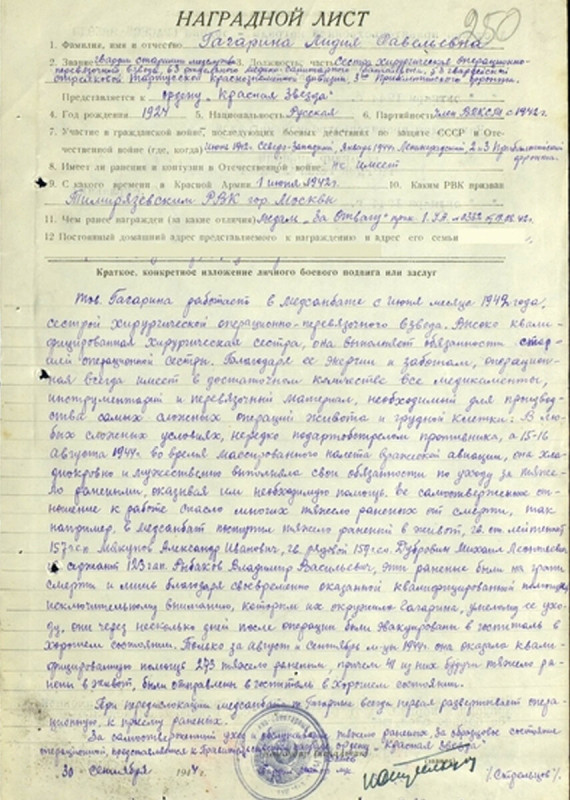 НАГРАДНОЙ ЛИСТ
250
1. Фамилия, имя и отчество Гагарина Лидия Савельевна
2. Звание Гвардии старшина медслужбы 3. Должность, часть Сестра хирургическая операционно-
перевязочного взвода, 63 отдельного медико-санитарного батальона, 53 гвардейской
стрелковой Тартуской Краснознаменной дивизии, 3го Прибалтийского фронта.
Представляется к ордену „Красная Звезда“
4. Год рождения 1924 5. Национальность Русская 6. Партийность Член ВЛКСМ с 1942г.
7. Участие в гражданской войне, последующих боевых действиях по защите СССР и Оте-
чественной войне (где, когда) Июнь 1942г. Северо-Западный, Январь 1944г. Ленинградский, 2 и 3 Прибалтийский
фронта.
8. Имеет ли ранения и контузии в Отечественной войне Не имеет
9. С какого времени в Красной Армии 1 июня 1942г. 10. Каким РВК призван
Тимирязевским РВК гор. Москвы
11. Чем ранее награжден (за какие отличия) Медаль „За Отвагу“ прик. 1.У.А.
12 Постоянный домашний адрес представляемого к награждению и адрес его семьи
Краткое, конкретное изложение личного боевого подвига или заслуг
Тов. Гагарина работает в медсанбате с июня месяца 1942 года,
сестрой хирургической операционно-перевязочного взвода. Высоко квали-
фицированная хирургическая сестра, она выполняет обязанности стар-
шей операционной сестры. Благодаря ее энергии и заботам, операцион-
ная всегда имеет в достаточном количестве все медикаменты,
инструментарий и перевязочный материал, необходимый для производ-
ства самых сложных операций живота и грудной клетки. В лю-
бых сложных условиях, нередко под артобстрелом противника, а 15-16
августа 1944г. во время массированного налета вражеской авиации, она хла-
днокровно и мужественно выполняла свои обязанности по уходу за тяже-
ло ранеными, оказывая им необходимую помощь. Ее самоотверженное от-
ношение к работе спасло многих тяжело раненых от смерти, так
например, в медсанбат поступили тяжело раненые в живот, гв. ст. лейтенант
157гсп Макупов Александр Иванович, гв. рядовой 159гсп Дубровин Михаил Леонтьевич
и сержант 123гап Анбаков Владимир Васильевич, эти раненые были на грани
смерти и лишь благодаря своевременно оказанной квалифицированной помощи,
исключительному вниманию, которым их окружила Гагарина, умелому ее ухо-
ду, они через несколько дней после операции были эвакуированы в госпиталь в
хорошем состоянии. Только за август и сентябрь м-цы 1944г. она оказала квали-
фицированную помощь 273 тяжело раненым, причем 41 из них будучи тяжело ра-
нены в живот, были отправлены в госпиталь в хорошем состоянии.
При передислокации медсанбата т. Гагарина всегда первая развертывает опера-
ционную, к приему раненых.
За самоотверженный уход и обслуживание тяжело раненых. За образцовое состояние
операционной, представляется к Правительственной награде ордену „Красная Звезда“
30 сентября 1944г.
/Стрельцов/.